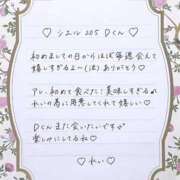 ♡ シエル 205 Dくん ♡
初めましての日からほぼ毎週会えて
嬉しすぎるよ〜(泣)ありがとう♡
アレ、初めて食べた! 美味しすぎるが
れいの為に用意してくれて嬉しい♡
Dくんまた会いたいです♡
楽しみにしてるね♡
♡ れい ♡